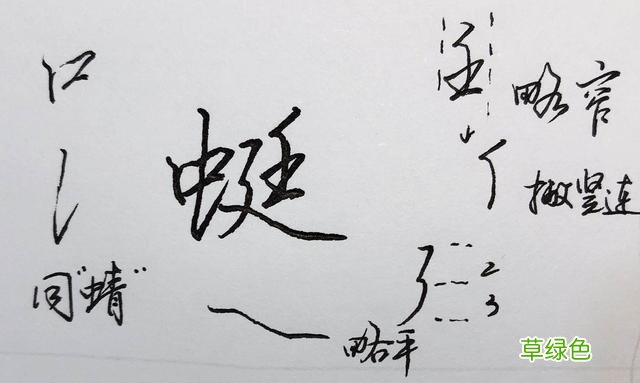 蜓
同"蜻"
略窄
撇竖连
2
3
略平
草绿色